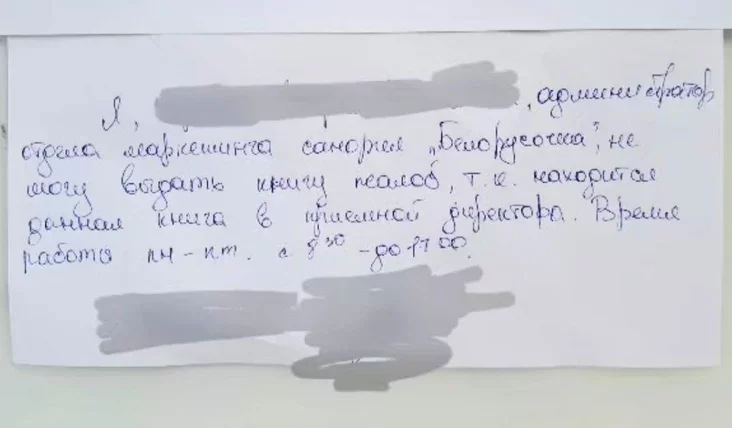 Я, , администратор
отдела маркетинга санория „Белорусочка", не
могу выдать книгу жалоб, т.к. находится
данная книга в приемной директора. Время
работы пн-пт. с 8 30 - до 17 00.